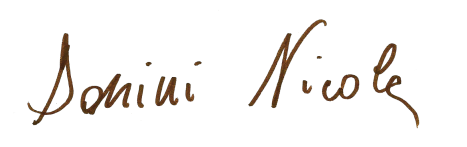 Donini Nicola